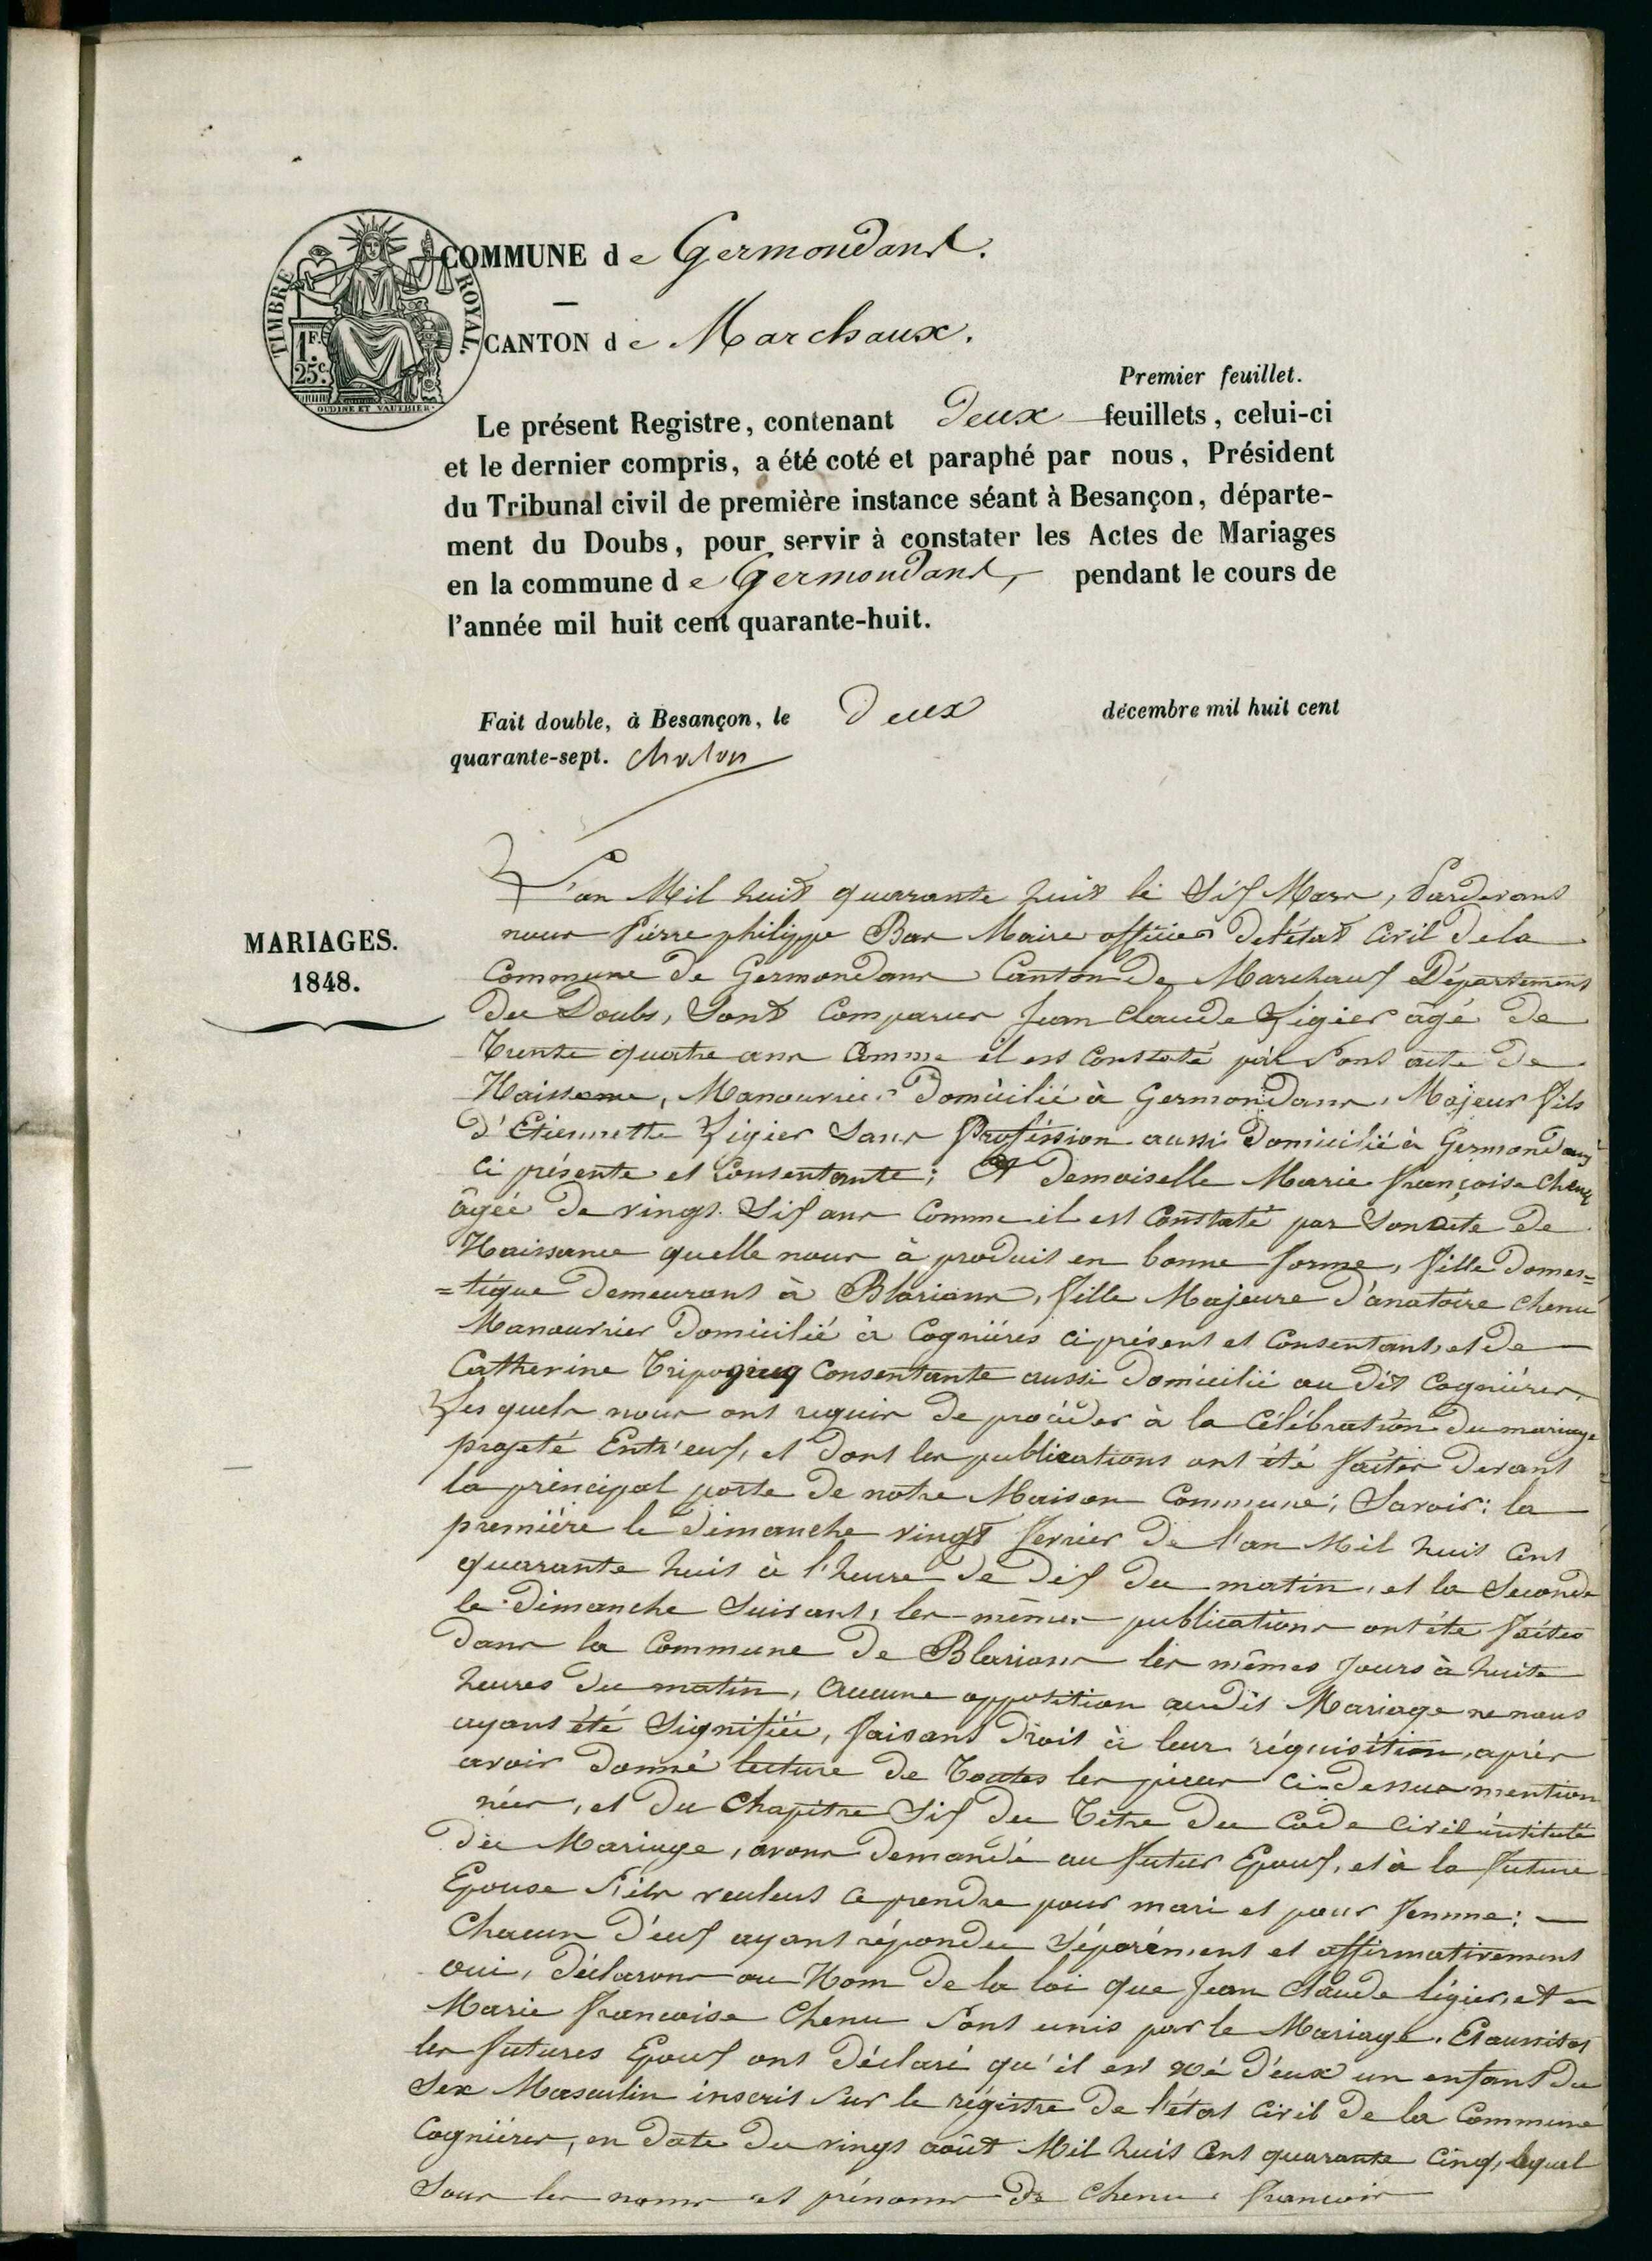 TIMBRE ROYAL.
1F.
25c.
OUDINE ET VAUTHIER.
COMMUNE de Germondans.
CANTON de Marchaux.
Premier feuillet.
Le présent Registre, contenant Deux feuillets, celui-ci
et le dernier compris, a été coté et paraphé par nous, Président
du Tribunal civil de première instance séant à Besançon, départe-
ment du Doubs, pour servir à constater les Actes de Mariages
en la commune de Germondans, pendant le cours de
l'année mil huit cent quarante-huit.
Fait double, à Besançon, le Deux décembre mil huit cent
quarante-sept.
MARIAGES.
1848.
L'an Mil huit quarante huit le Six Mars, Pardevant
nous Pierre philippe Bas Maire officier de l'état Civil de la
Commune de Germondans Canton de Marchaux Département
Du Doubs, Sont Comparus Jean Claude Ligier âgé de
Trente quatre ans Comme il est Constaté par Sont acte de
Naissance, Manouvrier Domicilié à Germondans, Majeur fils
d'Etiennette Ligier Sans Profession aussi Domicilié à Germondans
Ci présente et Consentante; Et Demoiselle Marie françoise Chenu
âgée De vingt Six ans Comme il est Constaté par Son acte de
Naissance quelle nous à produit en bonne forme, fille Domes=
=tique Demeurant à Blarians, fille Majeure D'anatoire Chenu
Manouvrier Domicilié à Cogniéres ci présent et Consentant, et De
Catherine Consentante aussi Domicilié au dit Cogniéres.
Les quels nous ont requis De procéder à la Célébration Du mariage
projeté Entr'eux, et Dont les publications ont été faites Devant
la principal porte De notre Maison Commune; Savoir: la
première le Dimanche vingt fevrier De l'an Mil huit Cent
quarante huit à l'heure De Dix Du matin, et la Seconde
le Dimanche Suivant, les mêmes publications ont été faites
Dans la Commune De Blarians les mêmes Jours à huite
heures Du matin, Aucune opposition audit Mariage ne nous
ayant été Signifiée, faisant Droit à leur réquisition, après
avoir Donné lecture De Toutes les pieces Ci-Dessus mention
nées, et Du Chapitre Six Du Titre Du Code Civil intitulé
Du Mariage, avons Demandé au futur Epoux, et à la future
Epouse S'ils veulent Ce prendre pour mari et pour femme:
Chacun D'eux ayant répondu Séparément et affirmativement
oui, Déclarons au Nom De la loi que Jean Claude ligier, et
Marie francoise Chenu Sont unis par le Mariage. Et aussitot
les futures Epoux ont Déclaré qu'il est né D'eux un enfant Du
Sex Masculin inscrit Sur le régistre De l'état Civil De la Commune
Cogniéres, en Date Du vingt août Mil huit Cent quarante Cinq, lequel
Sous les noms et prénoms De Chenu francois